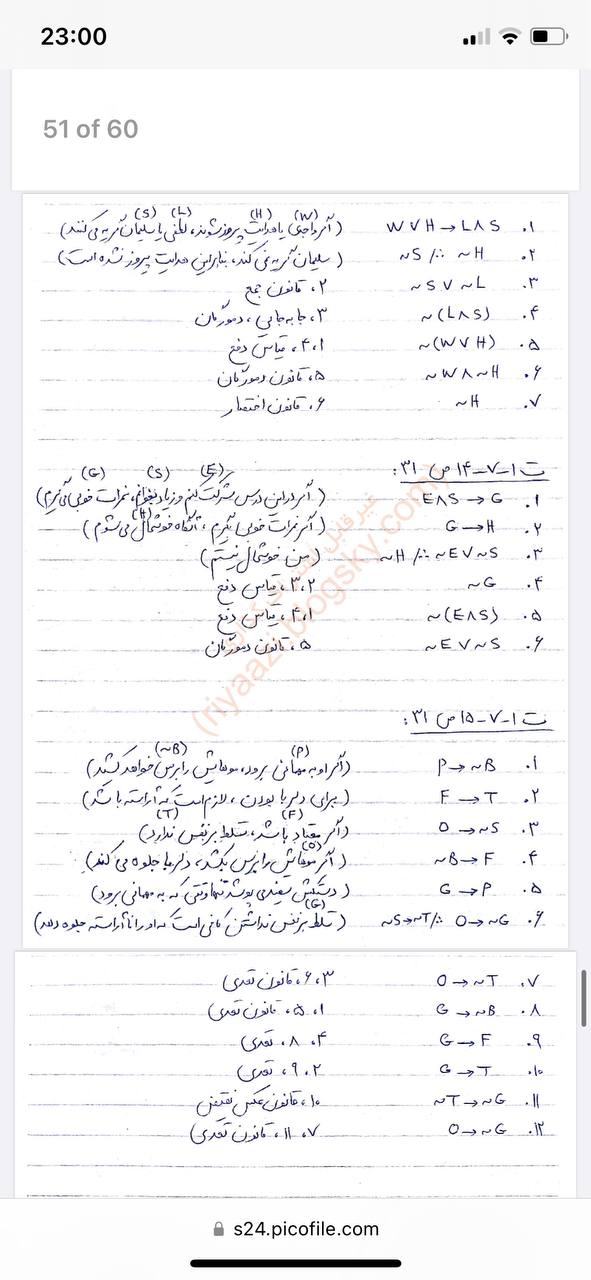 23:00
51 of 60
(S) (L) (H) (W)
۱. W ∨ H → L ∧ S (اگر واجبی یا هدایت پیروز شوند، لطفی یا سلیمان گریه می‌کنند)
۲. ~S /∴ ~H (سلیمان گریه نمی‌کند، بنابراین هدایت پیروز نشده است)
۳. ~S ∨ ~L ۲، قانون جمع
۴. ~(L ∧ S) ۳، جا به جایی، دمورگان
۵. ~(W ∨ H) ۱،۴، قیاس دفع
۶. ~W ∧ ~H ۵، قانون دمورگان
۷. ~H ۶، قانون اختصار
ت ۱-۷-۱۴ ص ۳۱:
(G) (S) (E)
۱. E ∧ S → G (اگر در این درس شرکت کنم و زیاد بخوانم، نمرات خوبی می‌گیرم)
۲. G → H (اگر نمرات خوبی بگیرم، آنگاه خوشحال می‌شوم)
(H)
۳. ~H /∴ ~E ∨ ~S (من خوشحال نیستم)
۴. ~G ۲،۳، قیاس دفع
۵. ~(E ∧ S) ۱،۴، قیاس دفع
۶. ~E ∨ ~S ۵، قانون دمورگان
(riyaazi.blogsky.com)
ت ۱-۷-۱۵ ص ۳۱:
(~B) (P)
۱. P → ~B (اگر او به مهمانی برود، موهایش را برس خواهد کشید)
۲. F → T (برای دلربا بودن، لازم است که آراسته باشد)
(T) (F)
۳. O → ~S (اگر معتاد باشد، تسلط بر نفس ندارد)
(O)
۴. ~B → F (اگر موهایش را برس بکشد، دلربا جلوه می‌کند)
۵. G → P (دستکش سفیدی پوشد تنها وقتی که به مهمانی برود)
(G)
۶. ~S → ~T /∴ O → ~G (تسلط بر نفس نداشتن کافی است که او را ناآراسته جلوه دهد)
۷. O → ~T ۳،۶، قانون تعدی
۸. G → ~B ۱،۵، قانون تعدی
۹. G → F ۴،۸، تعدی
۱۰. G → T ۲،۹، تعدی
۱۱. ~T → ~G ۱۰، قانون عکس نقیض
۱۲. O → ~G ۷،۱۱، قانون تعدی)
s24.picofile.com